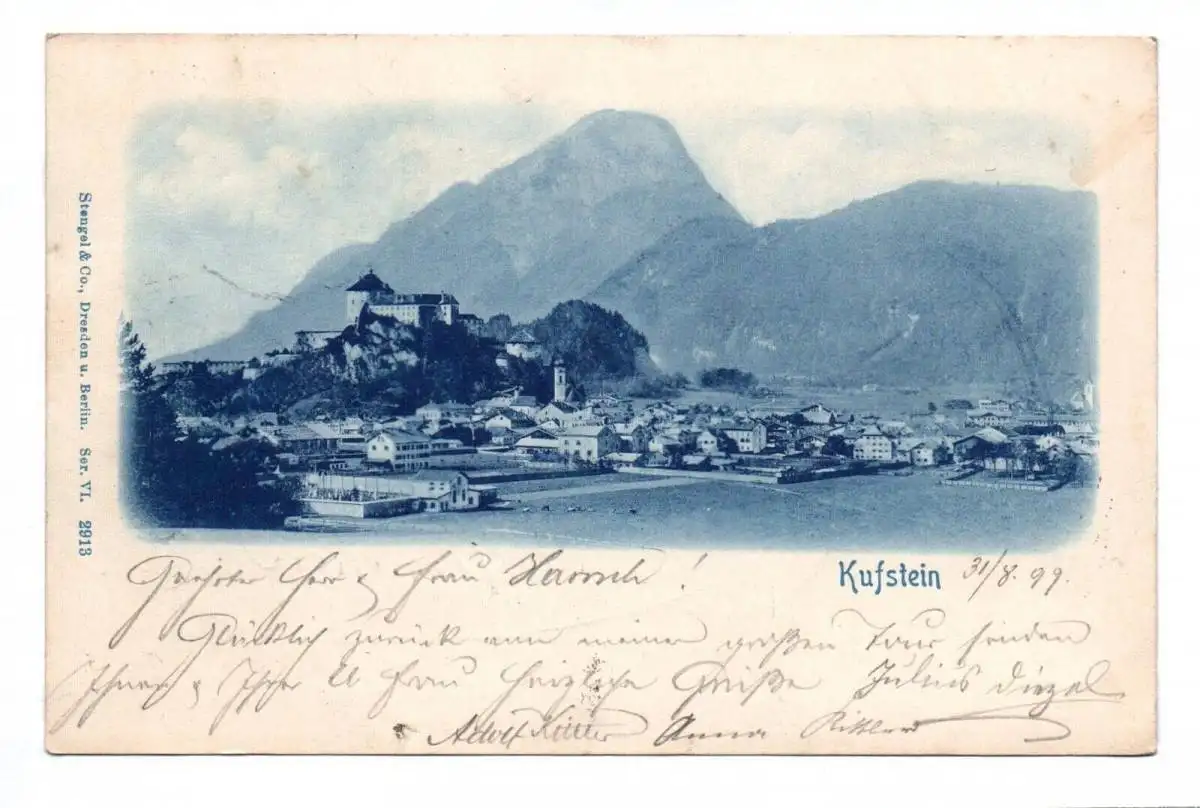 Stengel & Co., Dresden u. Berlin. Ser. VI. 2913
Kufstein 31/8. 99.
Geehrter Herr & Frau !
Glücklich zurück von meiner großen Tour senden
Ihnen & Ihrer Frau herzliche Grüße Julius Diezel
Adolf Anna